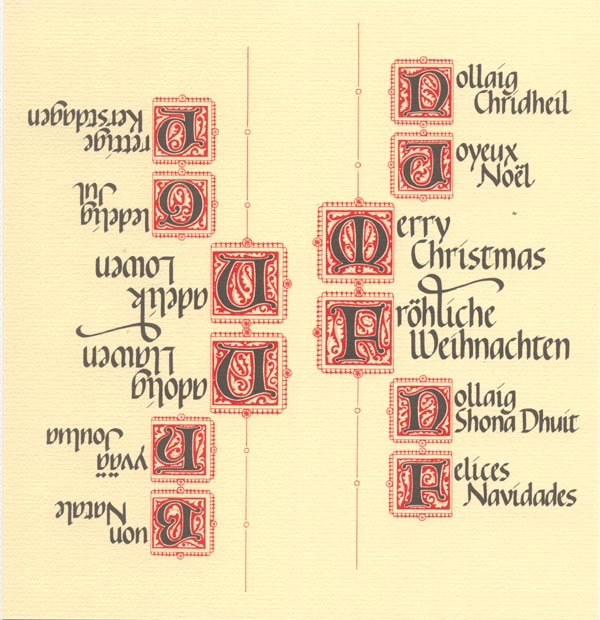 Nollaig
Chridheil
Joyeux
Noël
Merry
Christmas
&
Fröhliche
Weihnachten
Nollaig
Shona Dhuit
Felices
Navidades
Buon
Natale
Hyvää
Joulua
Nadolig
Llawen
&
Nadelik
Lowen
Gledelig
Jul
Prettige
Kerstdagen